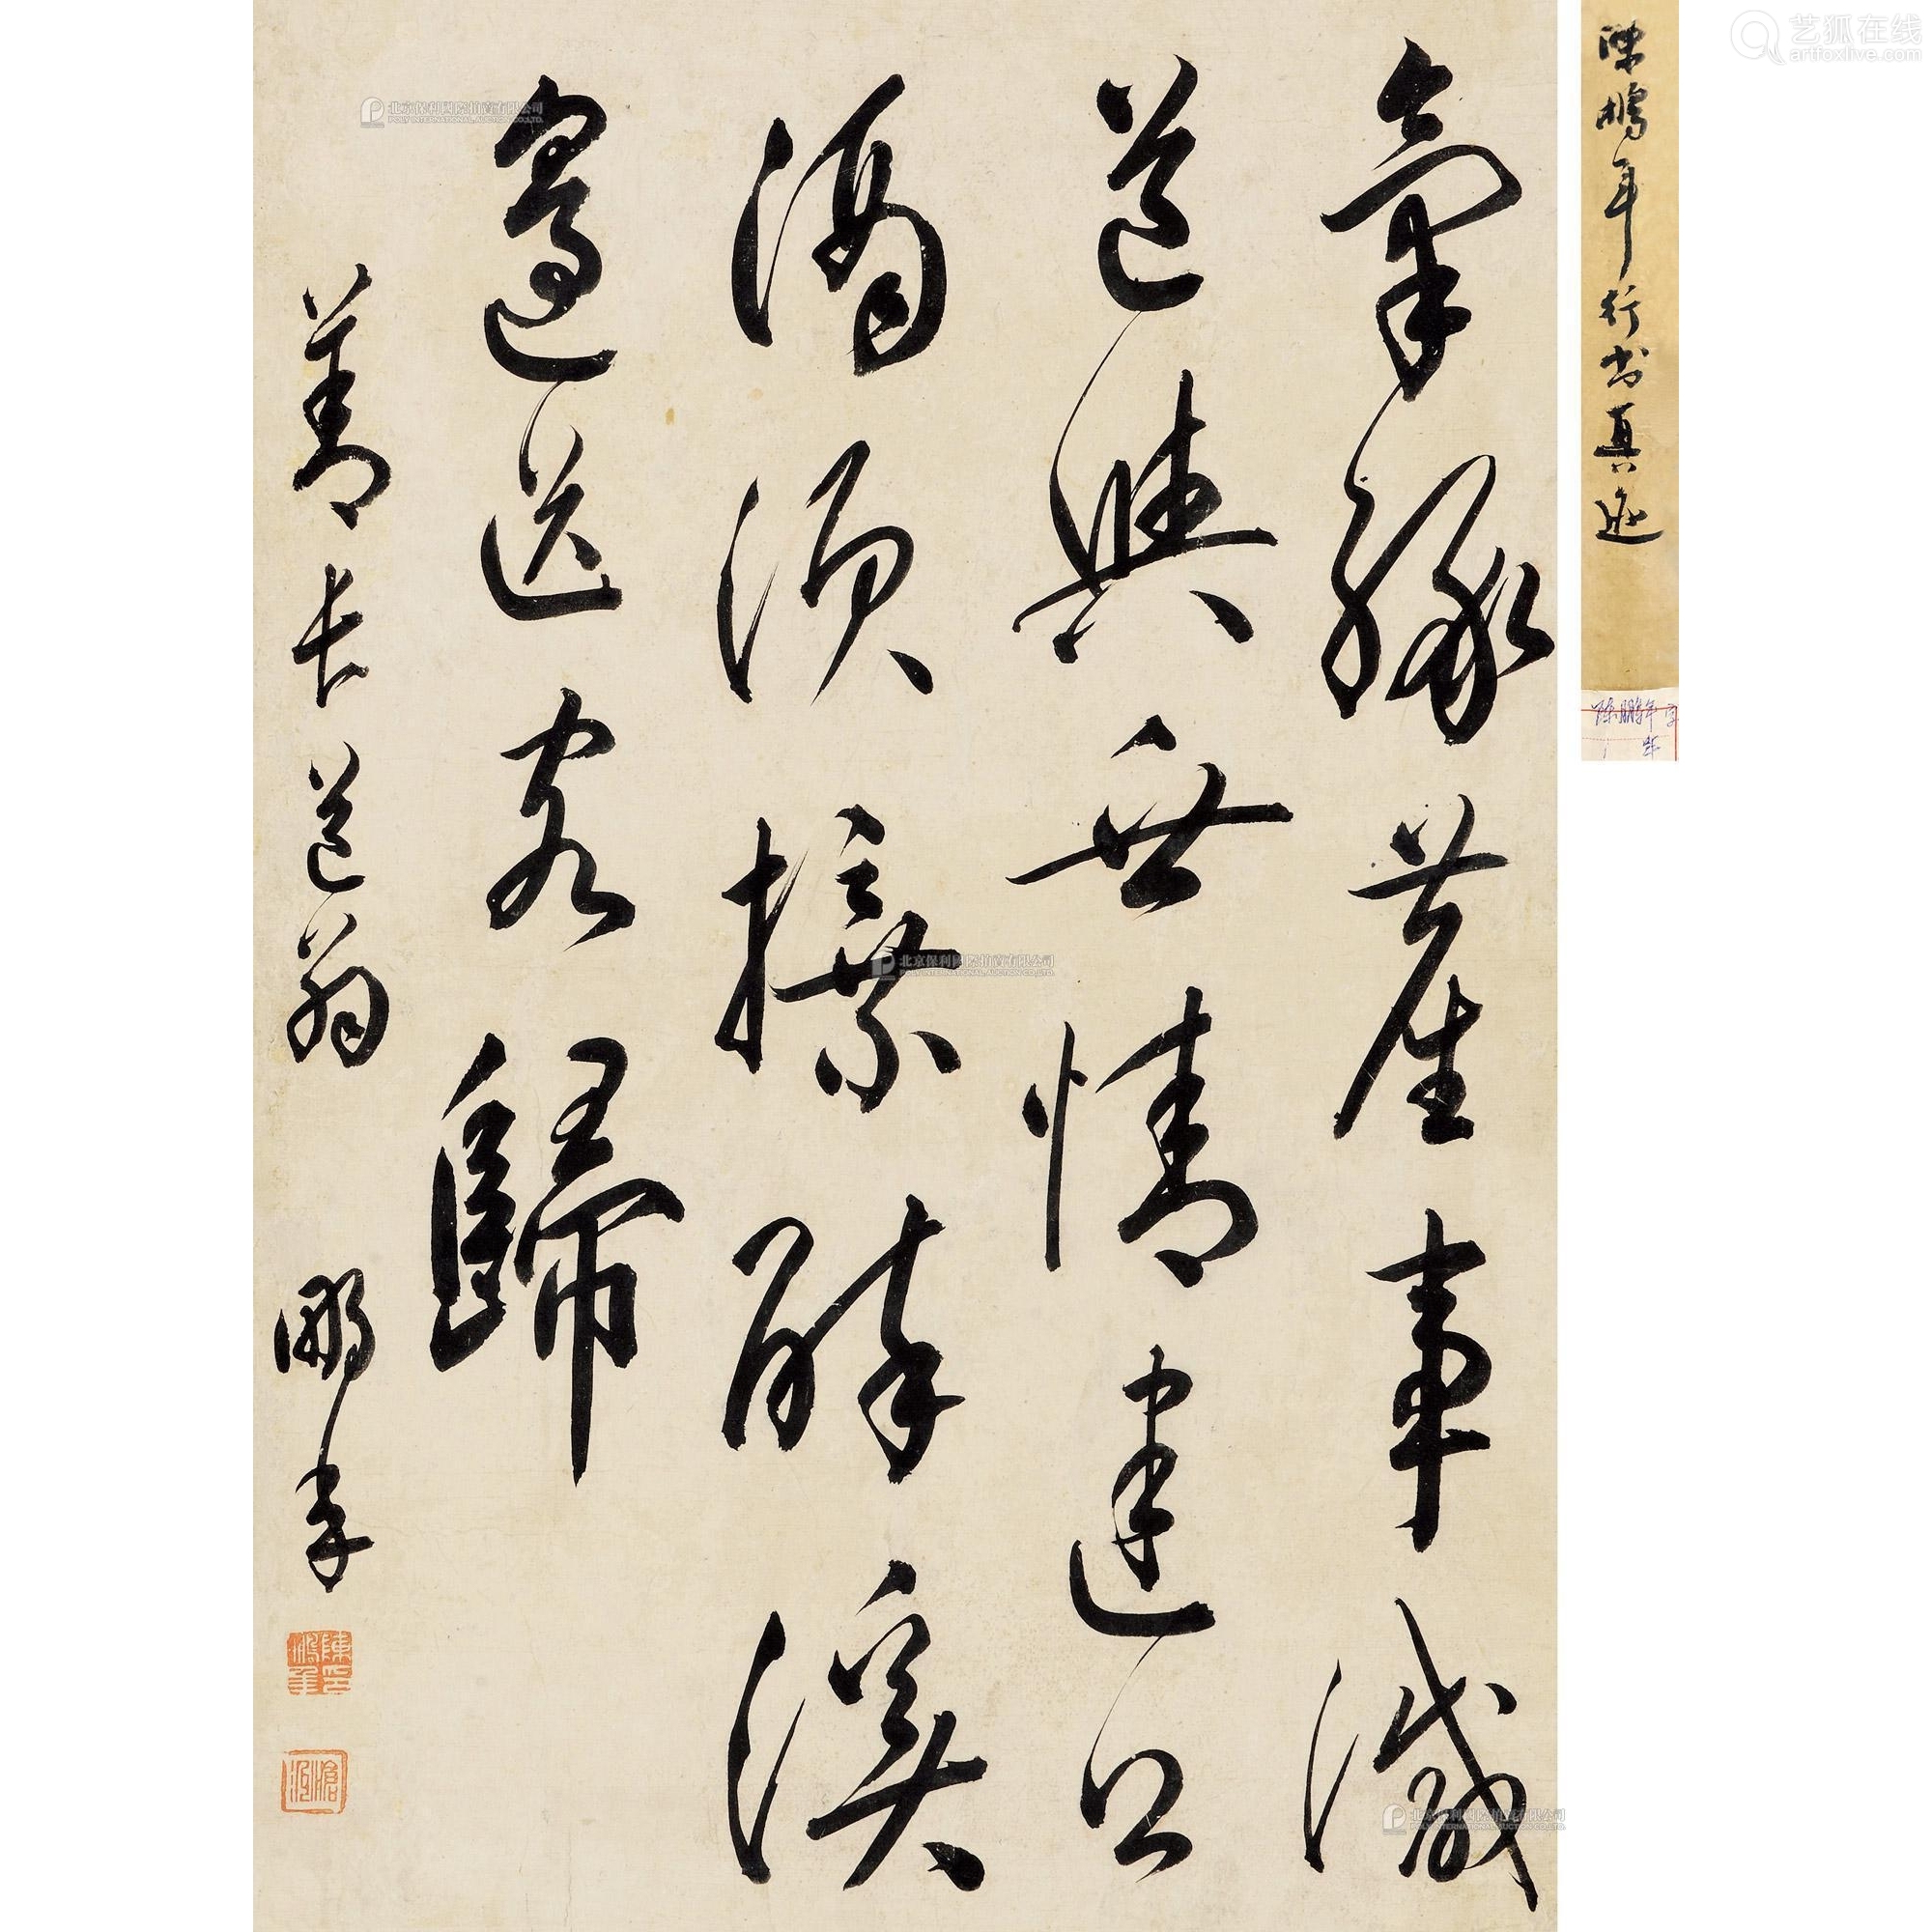 陳鵬年行书真迹
陈鹏年字
氣緣事減
道與世情違口
渴須醉溪
邊送客歸
菁長道翁 鵬年
陳鵬年印
滄洲
艺狐在线
artfoxlive.com
北京保利國際拍賣有限公司
POLY INTERNATIONAL AUCTION CO.,LTD.
北京保利國際拍賣有限公司
POLY INTERNATIONAL AUCTION CO.,LTD.
北京保利國際拍賣有限公司
POLY INTERNATIONAL AUCTION CO.,LTD.